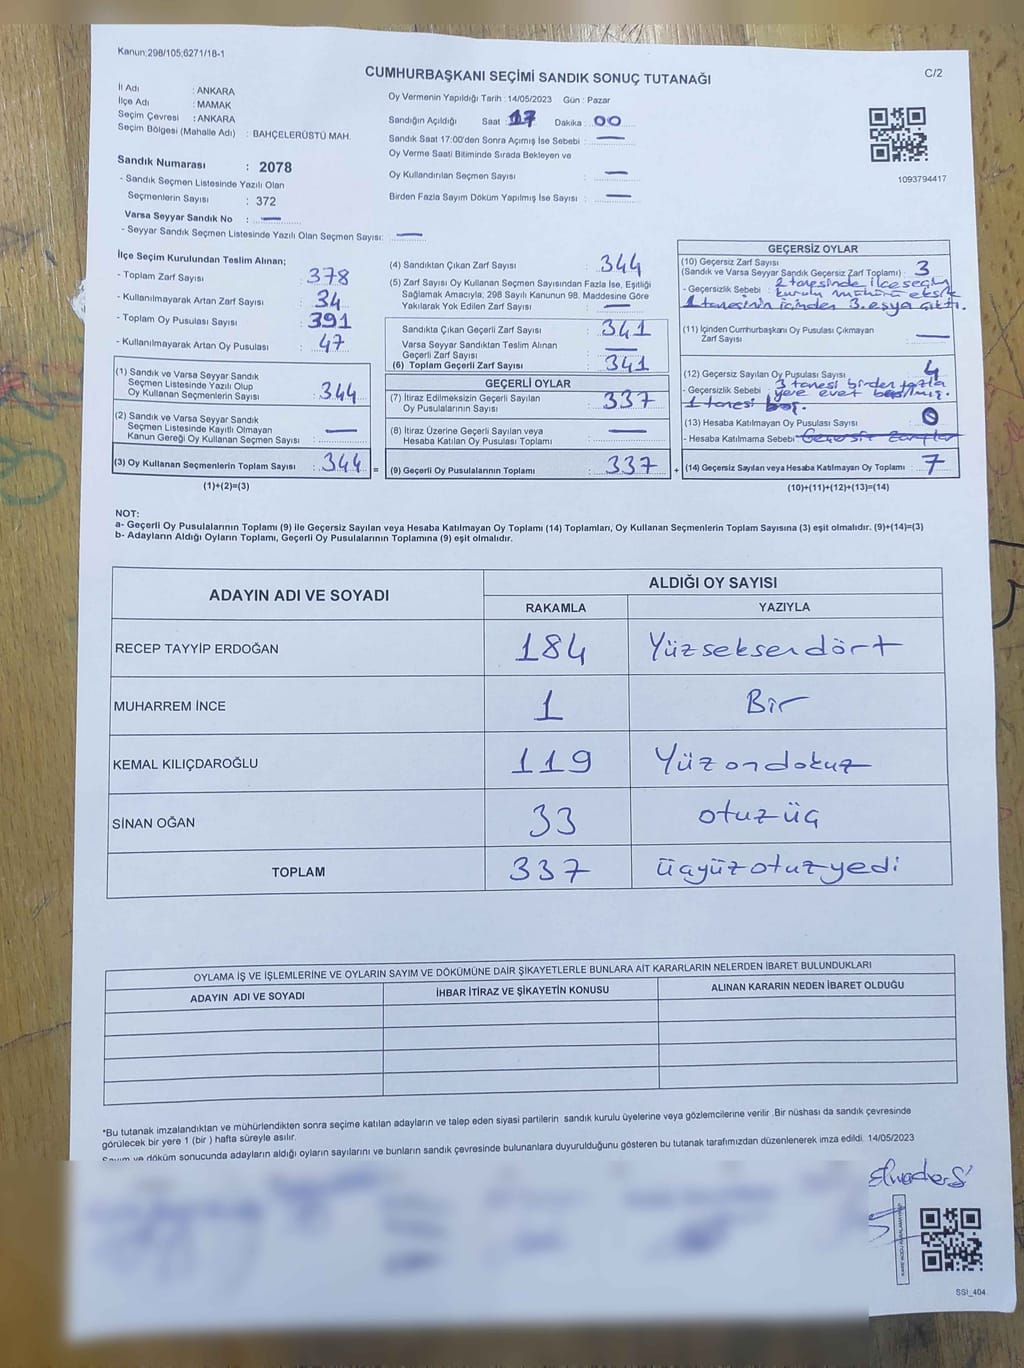 Kanun;298/105;6271/18-1
C/2
CUMHURBAŞKANI SEÇİMİ SANDIK SONUÇ TUTANAĞI
İl Adı : ANKARA
İlçe Adı : MAMAK
Seçim Çevresi : ANKARA
Seçim Bölgesi (Mahalle Adı) : BAHÇELERÜSTÜ MAH.
Sandık Numarası : 2078
- Sandık Seçmen Listesinde Yazılı Olan
Seçmenlerin Sayısı : 372
Varsa Seyyar Sandık No : —
- Seyyar Sandık Seçmen Listesinde Yazılı Olan Seçmen Sayısı: —
Oy Vermenin Yapıldığı Tarih : 14/05/2023 Gün : Pazar
Sandığın Açıldığı Saat : 17 Dakika : 00
Sandık Saat 17:00'den Sonra Açımış İse Sebebi : —
Oy Verme Saati Bitiminde Sırada Bekleyen ve
Oy Kullandırılan Seçmen Sayısı : —
Birden Fazla Sayım Döküm Yapılmış İse Sayısı : —
1093794417
İlçe Seçim Kurulundan Teslim Alınan;
- Toplam Zarf Sayısı : 378
- Kullanılmayarak Artan Zarf Sayısı : 34
- Toplam Oy Pusulası Sayısı : 391
- Kullanılmayarak Artan Oy Pusulası : 47
(1) Sandık ve Varsa Seyyar Sandık
Seçmen Listesinde Yazılı Olup
Oy Kullanan Seçmenlerin Sayısı : 344
(2) Sandık ve Varsa Seyyar Sandık
Seçmen Listesinde Kayıtlı Olmayan
Kanun Gereği Oy Kullanan Seçmen Sayısı : —
(3) Oy Kullanan Seçmenlerin Toplam Sayısı : 344 =
(1)+(2)=(3)
(4) Sandıktan Çıkan Zarf Sayısı : 344
(5) Zarf Sayısı Oy Kullanan Seçmen Sayısından Fazla İse, Eşitliği
Sağlamak Amacıyla, 298 Sayılı Kanunun 98. Maddesine Göre
Yakılarak Yok Edilen Zarf Sayısı : —
Sandıkta Çıkan Geçerli Zarf Sayısı : 341
Varsa Seyyar Sandıktan Teslim Alınan
Geçerli Zarf Sayısı : —
(6) Toplam Geçerli Zarf Sayısı : 341
GEÇERLİ OYLAR
(7) İtiraz Edilmeksizin Geçerli Sayılan
Oy Pusulalarının Sayısı : 337
(8) İtiraz Üzerine Geçerli Sayılan veya
Hesaba Katılan Oy Pusulası Toplamı : —
(9) Geçerli Oy Pusulalarının Toplamı : 337 +
GEÇERSİZ OYLAR
(10) Geçersiz Zarf Sayısı
(Sandık ve Varsa Seyyar Sandık Geçersiz Zarf Toplamı) : 3
- Geçersizlik Sebebi : 2 tanesinde ilçe seçim
kurulu mührü eksik
1 tanesinin içinden 3. eşya çıktı.
(11) İçinden Cumhurbaşkanı Oy Pusulası Çıkmayan
Zarf Sayısı : —
(12) Geçersiz Sayılan Oy Pusulası Sayısı : 4
- Geçersizlik Sebebi : 3 tanesi birden fazla
yere evet basılmış.
1 tanesi boş.
(13) Hesaba Katılmayan Oy Pusulası Sayısı : 0
- Hesaba Katılmama Sebebi :
(14) Geçersiz Sayılan veya Hesaba Katılmayan Oy Toplamı : 7
(10)+(11)+(12)+(13)=(14)
NOT:
a- Geçerli Oy Pusulalarının Toplamı (9) ile Geçersiz Sayılan veya Hesaba Katılmayan Oy Toplamı (14) Toplamları, Oy Kullanan Seçmenlerin Toplam Sayısına (3) eşit olmalıdır. (9)+(14)=(3)
b- Adayların Aldığı Oyların Toplamı, Geçerli Oy Pusulalarının Toplamına (9) eşit olmalıdır.
ADAYIN ADI VE SOYADI
ALDIĞI OY SAYISI
RAKAMLA YAZIYLA
RECEP TAYYİP ERDOĞAN 184 Yüzseksendört
MUHARREM İNCE 1 Bir
KEMAL KILIÇDAROĞLU 119 Yüzondokuz
SİNAN OĞAN 33 otuzüç
TOPLAM 337 üçyüzotuzyedi
OYLAMA İŞ VE İŞLEMLERİNE VE OYLARIN SAYIM VE DÖKÜMÜNE DAİR ŞİKAYETLERLE BUNLARA AİT KARARLARIN NELERDEN İBARET BULUNDUKLARI
ADAYIN ADI VE SOYADI İHBAR İTİRAZ VE ŞİKAYETİN KONUSU ALINAN KARARIN NEDEN İBARET OLDUĞU
*Bu tutanak imzalandıktan ve mühürlendikten sonra seçime katılan adayların ve talep eden siyasi partilerin sandık kurulu üyelerine veya gözlemcilerine verilir .Bir nüshası da sandık çevresinde
görülecek bir yere 1 (bir ) hafta süreyle asılır.
Sayım ve döküm sonucunda adayların aldığı oyların sayılarını ve bunların sandık çevresinde bulunanlara duyurulduğunu gösteren bu tutanak tarafımızdan düzenlenerek imza edildi. 14/05/2023
SSI_404